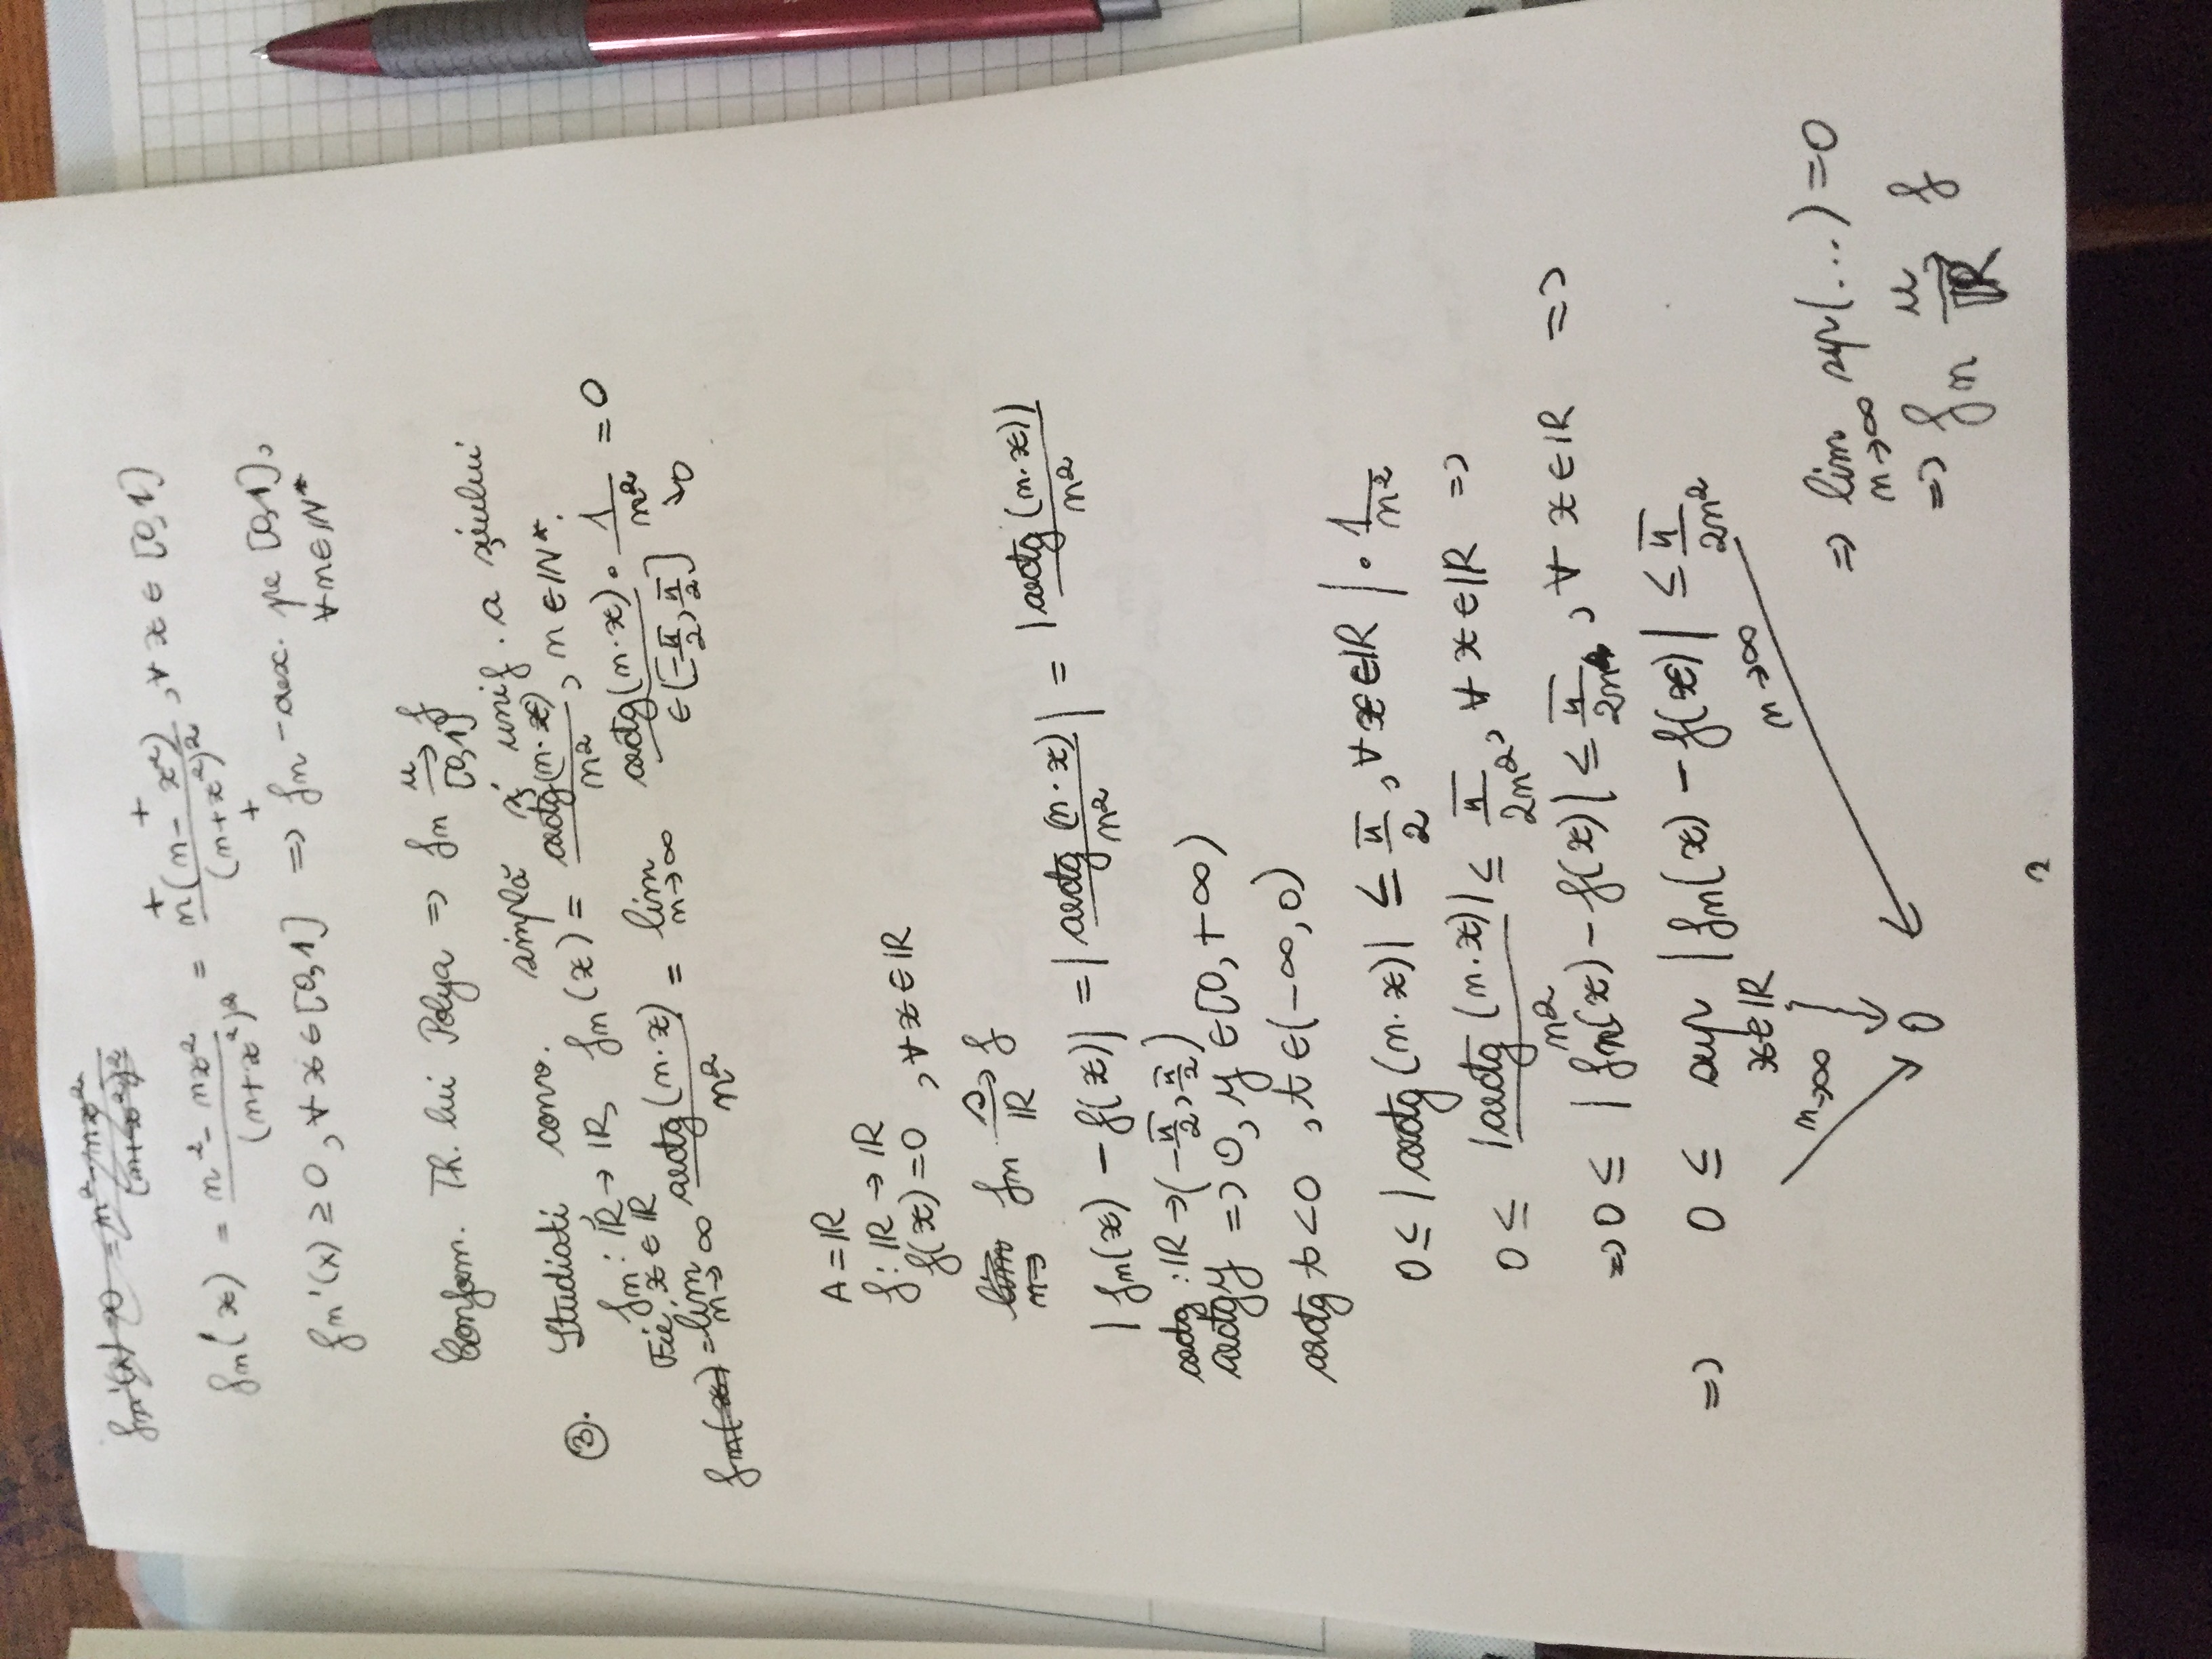 fn'(x) = (n² - nx²)/(n+x²)² = n(n - x²)/(n+x²)², ∀ x ∈ [0,1]
fn'(x) ≥ 0, ∀ x ∈ [0,1] => fn - cresc. pe [0,1],
∀ n ∈ ℕ*
Conform. Th. lui Polya => fn →ᵘ[0,1] f
③. Studiați conv. simplă și unif. a șirului
fn: ℝ → ℝ, fn(x) = arctg(n·x)/n², n ∈ ℕ*.
Fie x ∈ ℝ
= lim n→∞ arctg(n·x)/n² = lim n→∞ arctg(n·x) · 1/n² = 0
∈ [-π/2, π/2] ↘0
A = ℝ
f: ℝ → ℝ
f(x) = 0, ∀ x ∈ ℝ
fn →ˢ ℝ f
|fn(x) - f(x)| = |arctg(n·x)/n²| = |arctg(n·x)|/n²
arctg : ℝ → (-π/2, π/2)
arctg y => 0, y ∈ [0, +∞)
arctg t < 0, t ∈ (-∞, 0)
0 ≤ |arctg(n·x)| ≤ π/2, ∀ x ∈ ℝ | · 1/n²
0 ≤ |arctg(n·x)|/n² ≤ π/2n², ∀ x ∈ ℝ =>
=> 0 ≤ |fn(x) - f(x)| ≤ π/2n², ∀ x ∈ ℝ =>
=> 0 ≤ sup x∈ℝ |fn(x) - f(x)| ≤ π/2n²
n→∞ n→∞
0
=> lim n→∞ sup(...) = 0
=> fn →ᵘ ℝ f
2